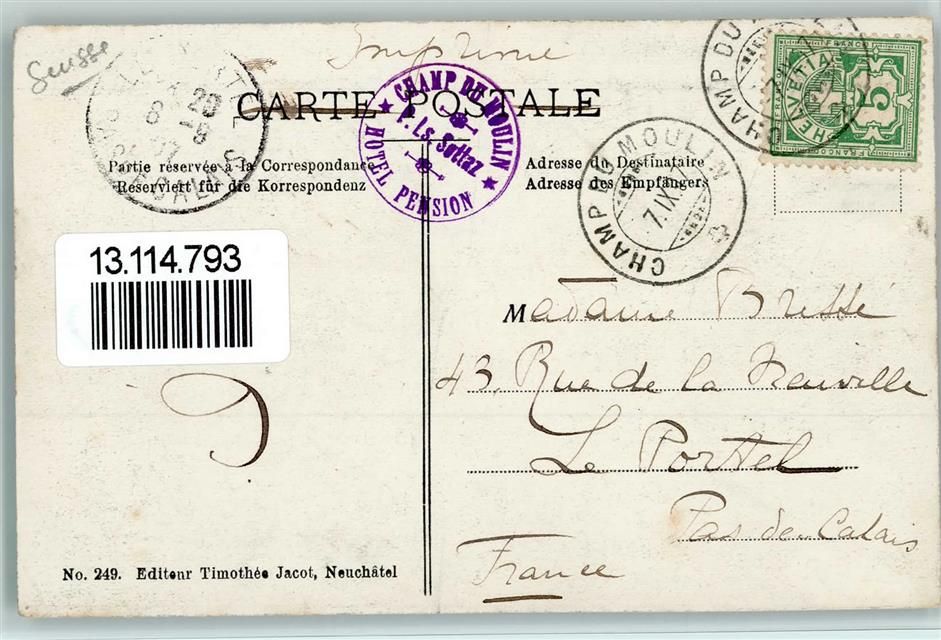 Suisse
Imprimé
CARTE POSTALE
CHAMP DU MOULIN
F. Ls. Sottaz
HOTEL PENSION
CHAMP DU
FRANCO
HELVETIA
5
FRANCO
Partie réservée à la Correspondance
Reserviert für die Korrespondenz
Adresse du Destinataire
Adresse des Empfängers
CHAMP DU MOULIN
7.IX.
13.114.793
Madame Bressé
43, Rue de la Neuville
Le Portel
Pas de Calais
France
No. 249. Editeur Timothée Jacot, Neuchâtel